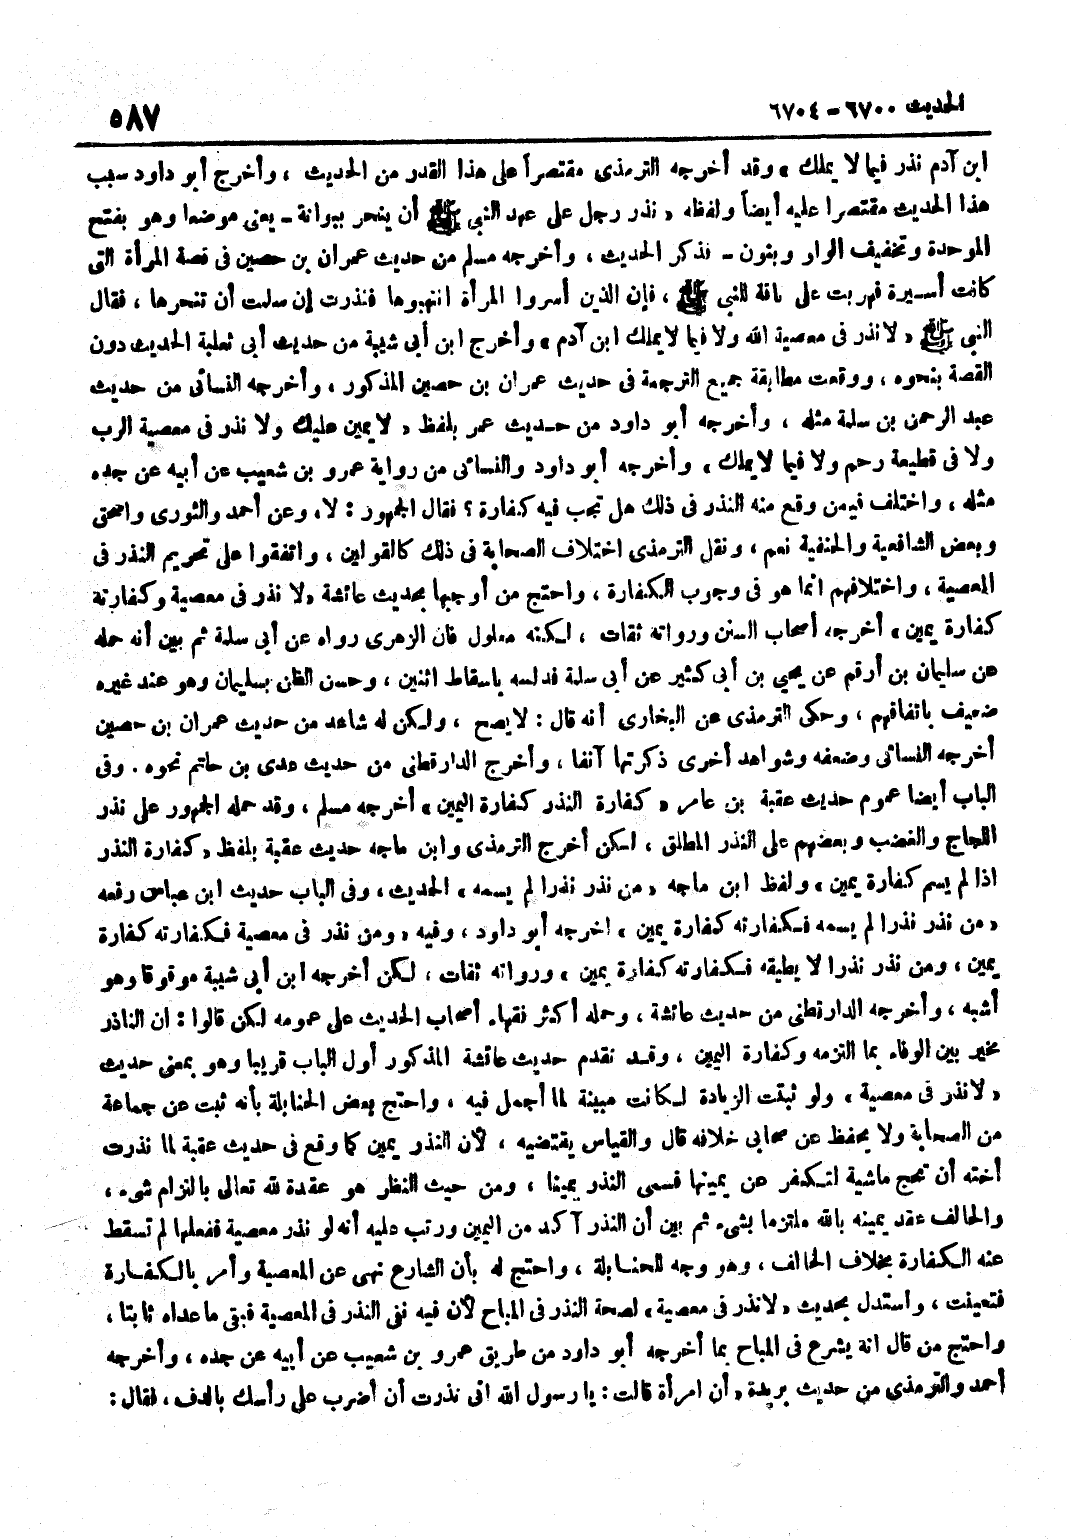 الحديث ٦٧٠٠ - ٦٧٠٤
٥٨٧
ابن آدم نذر فيما لا يملك » وقد أخرجه الترمذى مقتصراً على هذا القدر من الحديث ، وأخرج أبو داود سبب
هذا الحديث مقتصرا عليه أيضاً ولفظه « نذر رجل على عهد النبي ﷺ أن ينحر ببوانة ـ يعنى موضعا وهو بفتح
الموحدة وتخفيف الواو وبنون ـ فذكر الحديث ، وأخرجه مسلم من حديث عمران بن حصين فى قصة المرأة التى
كانت أسيرة فهربت على ناقة للنبي ﷺ ، فإن الذين أسروا المرأة انتهبوها فنذرت إن سلمت أن تنحرها ، فقال
النبي ﷺ « لا نذر فى معصية الله ولا فيما لا يملك ابن آدم » وأخرج ابن أبى شيبة من حديث أبى ثعلبة الحديث دون
القصة بنحوه ، ووقعت مطابقة جميع الترجمة فى حديث عمران بن حصين المذكور ، وأخرجه النسائى من حديث
عبد الرحمن بن سلمة مثله ، وأخرجه أبو داود من حديث عمر بلفظ « لا يمين عليك ولا نذر فى معصية الرب
ولا فى قطيعة رحم ولا فيما لا يملك » وأخرجه أبو داود والنسائى من رواية عمرو بن شعيب عن أبيه عن جده
مثله ، واختلف فيمن وقع منه النذر فى ذلك هل تجب فيه كفارة ؟ فقال الجمهور : لا ، وعن أحمد والثورى واسحق
وبعض الشافعية والحنفية نعم ، ونقل الترمذى اختلاف الصحابة فى ذلك كالقولين ، واتفقوا على تحريم النذر فى
المعصية ، واختلافهم انما هو فى وجوب الكفارة ، واحتج من أوجبها بحديث عائشة « لا نذر فى معصية وكفارته
كفارة يمين » أخرجه أصحاب السنن ورواته ثقات ، لكنه معلول فان الزهرى رواه عن أبى سلمة ثم بين أنه حمله
عن سليمان بن أرقم عن يحيي بن أبى كثير عن أبى سلمة فدلسه باسقاط اثنين ، وحسن الظن بسليمان وهو عند غيره
ضعيف باتفاقهم ، وحكى الترمذى عن البخارى أنه قال : لا يصح ، ولكن له شاهد من حديث عمران بن حصين
أخرجه النسائى وضعفه وشواهد أخرى ذكرتها آنفا ، وأخرج الدارقطنى من حديث عدى بن حاتم نحوه . وفى
الباب أيضا عموم حديث عقبة بن عامر « كفارة النذر كفارة اليمين » أخرجه مسلم ، وقد حمله الجمهور على نذر
اللجاج والغضب وبعضهم على النذر المطلق ، لكن أخرج الترمذى وابن ماجه حديث عقبة بلفظ « كفارة النذر
اذا لم يسم كفارة يمين » ولفظ ابن ماجه « من نذر نذرا لم يسمه » الحديث ، وفى الباب حديث ابن عباس رفعه
« من نذر نذرا لم يسمه فكفارته كفارة يمين » اخرجه أبو داود ، وفيه « ومن نذر فى معصية فكفارته كفارة
يمين ، ومن نذر نذرا لا يطيقه فكفارته كفارة يمين » ورواته ثقات ، لكن أخرجه ابن أبى شيبة موقوفا وهو
أشبه ، وأخرجه الدارقطنى من حديث عائشة ، وحمله أكثر فقهاء أصحاب الحديث على عمومه لكن قالوا : ان الناذر
مخير بين الوفاء بما التزمه وكفارة اليمين ، وقد تقدم حديث عائشة المذكور أول الباب قريبا وهو بمعنى حديث
« لا نذر فى معصية » ولو ثبتت الزيادة لكانت مبينة لما أجمل فيه ، واحتج بعض الحنابلة بأنه ثبت عن جماعة
من الصحابة ولا يحفظ عن صحابى خلافه قال والقياس يقتضيه ، لأن النذر يمين كما وقع فى حديث عقبة لما نذرت
أخته أن تحج ماشية لتكفر عن يمينها فسمى النذر يمينا ، ومن حيث النظر هو عقدة لله تعالى بالتزام شىء ،
والحالف عقد يمينه بالله ملتزما بشىء ثم بين أن النذر آكد من اليمين ورتب عليه أنه لو نذر معصية ففعلها لم تسقط
عنه الكفارة بخلاف الحالف ، وهو وجه للحنابلة ، واحتج له بأن الشارع نهى عن المعصية وأمر بالكفارة
فتعينت ، واستدل بحديث « لا نذر فى معصية » لصحة النذر فى المباح لأن فيه نفى النذر فى المعصية فبقى ما عداه ثابتا ،
واحتج من قال انه يشرع فى المباح بما أخرجه أبو داود من طريق عمرو بن شعيب عن أبيه عن جده ، وأخرجه
أحمد والترمذى من حديث بريدة « أن امرأة قالت : يا رسول الله انى نذرت أن أضرب على رأسك بالدف ، فقال :